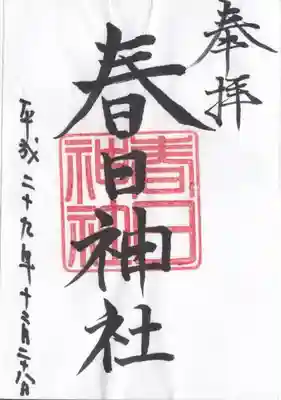 奉拝
春日神社
春日神社
平成二十九年十二月二十八日